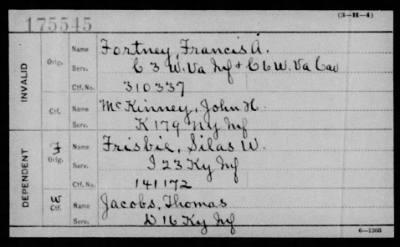 175545
(3—H—4)
INVALID
Orig. Name Fortney, Francis A.
Serv. C 3 W. Va Inf + C 6 W. Va Cav
Ctf. No. 310337
Ctf. Name McKinney, John H.
Serv. K 179 Ny Inf
DEPENDENT
F Orig. Name Frisbie, Silas W.
Serv. I 23 Ky Inf
Ctf. No. 141172
W Ctf. Name Jacobs, Thomas
Serv. D 16 Ky Inf
6—1303